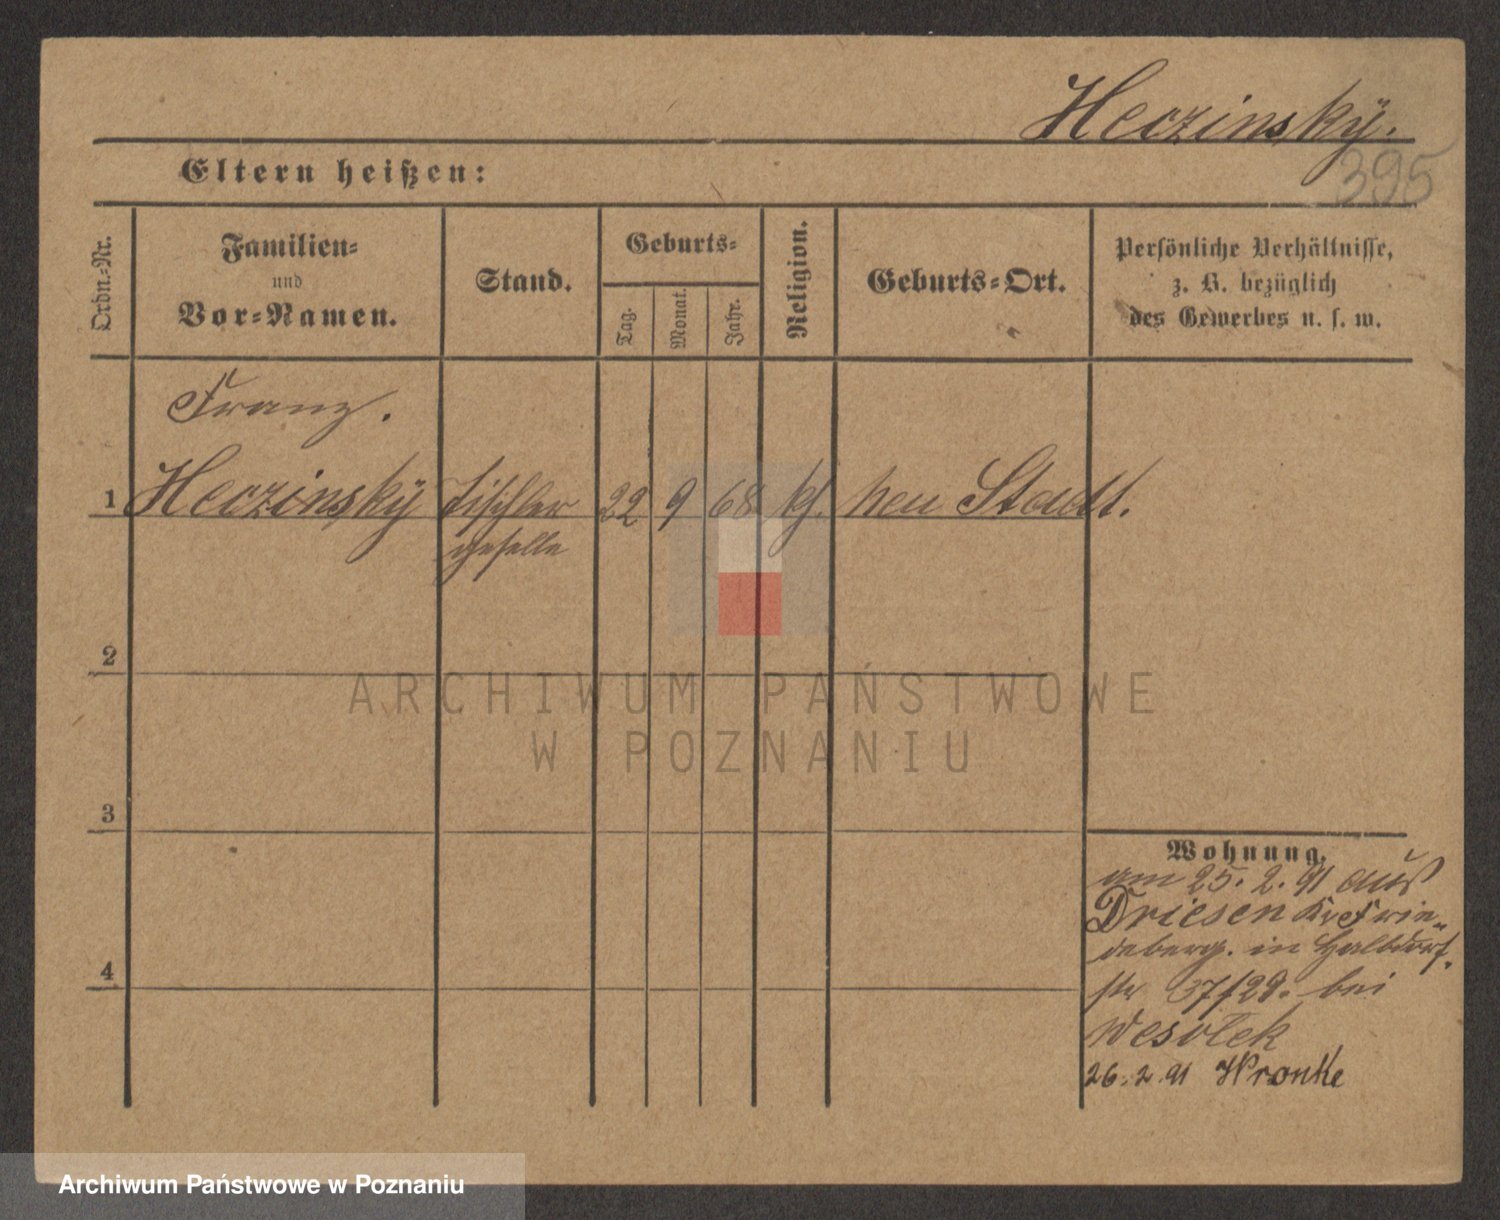 Heczinsky.
395
Eltern heißen:
Ordn.-Nr.
Familien-
und
Vor-Namen.
Stand.
Geburts-
Tag.
Monat.
Jahr.
Religion.
Geburts-Ort.
Persönliche Verhältnisse,
z. B. bezüglich
des Gewerbes u. s. w.
Franz.
1 Heczinsky Tischler 22 9 68 kth. Neu Stadt.
geselle
2
3
4
Wohnung.
am 25. 2. 91 aus
Driesen Kr Frie-
deberg. in Halbdorf
str 37/29. bei
Wesolek
26. 2. 91 Wronke
ARCHIWUM PAŃSTWOWE
W POZNANIU
Archiwum Państwowe w Poznaniu